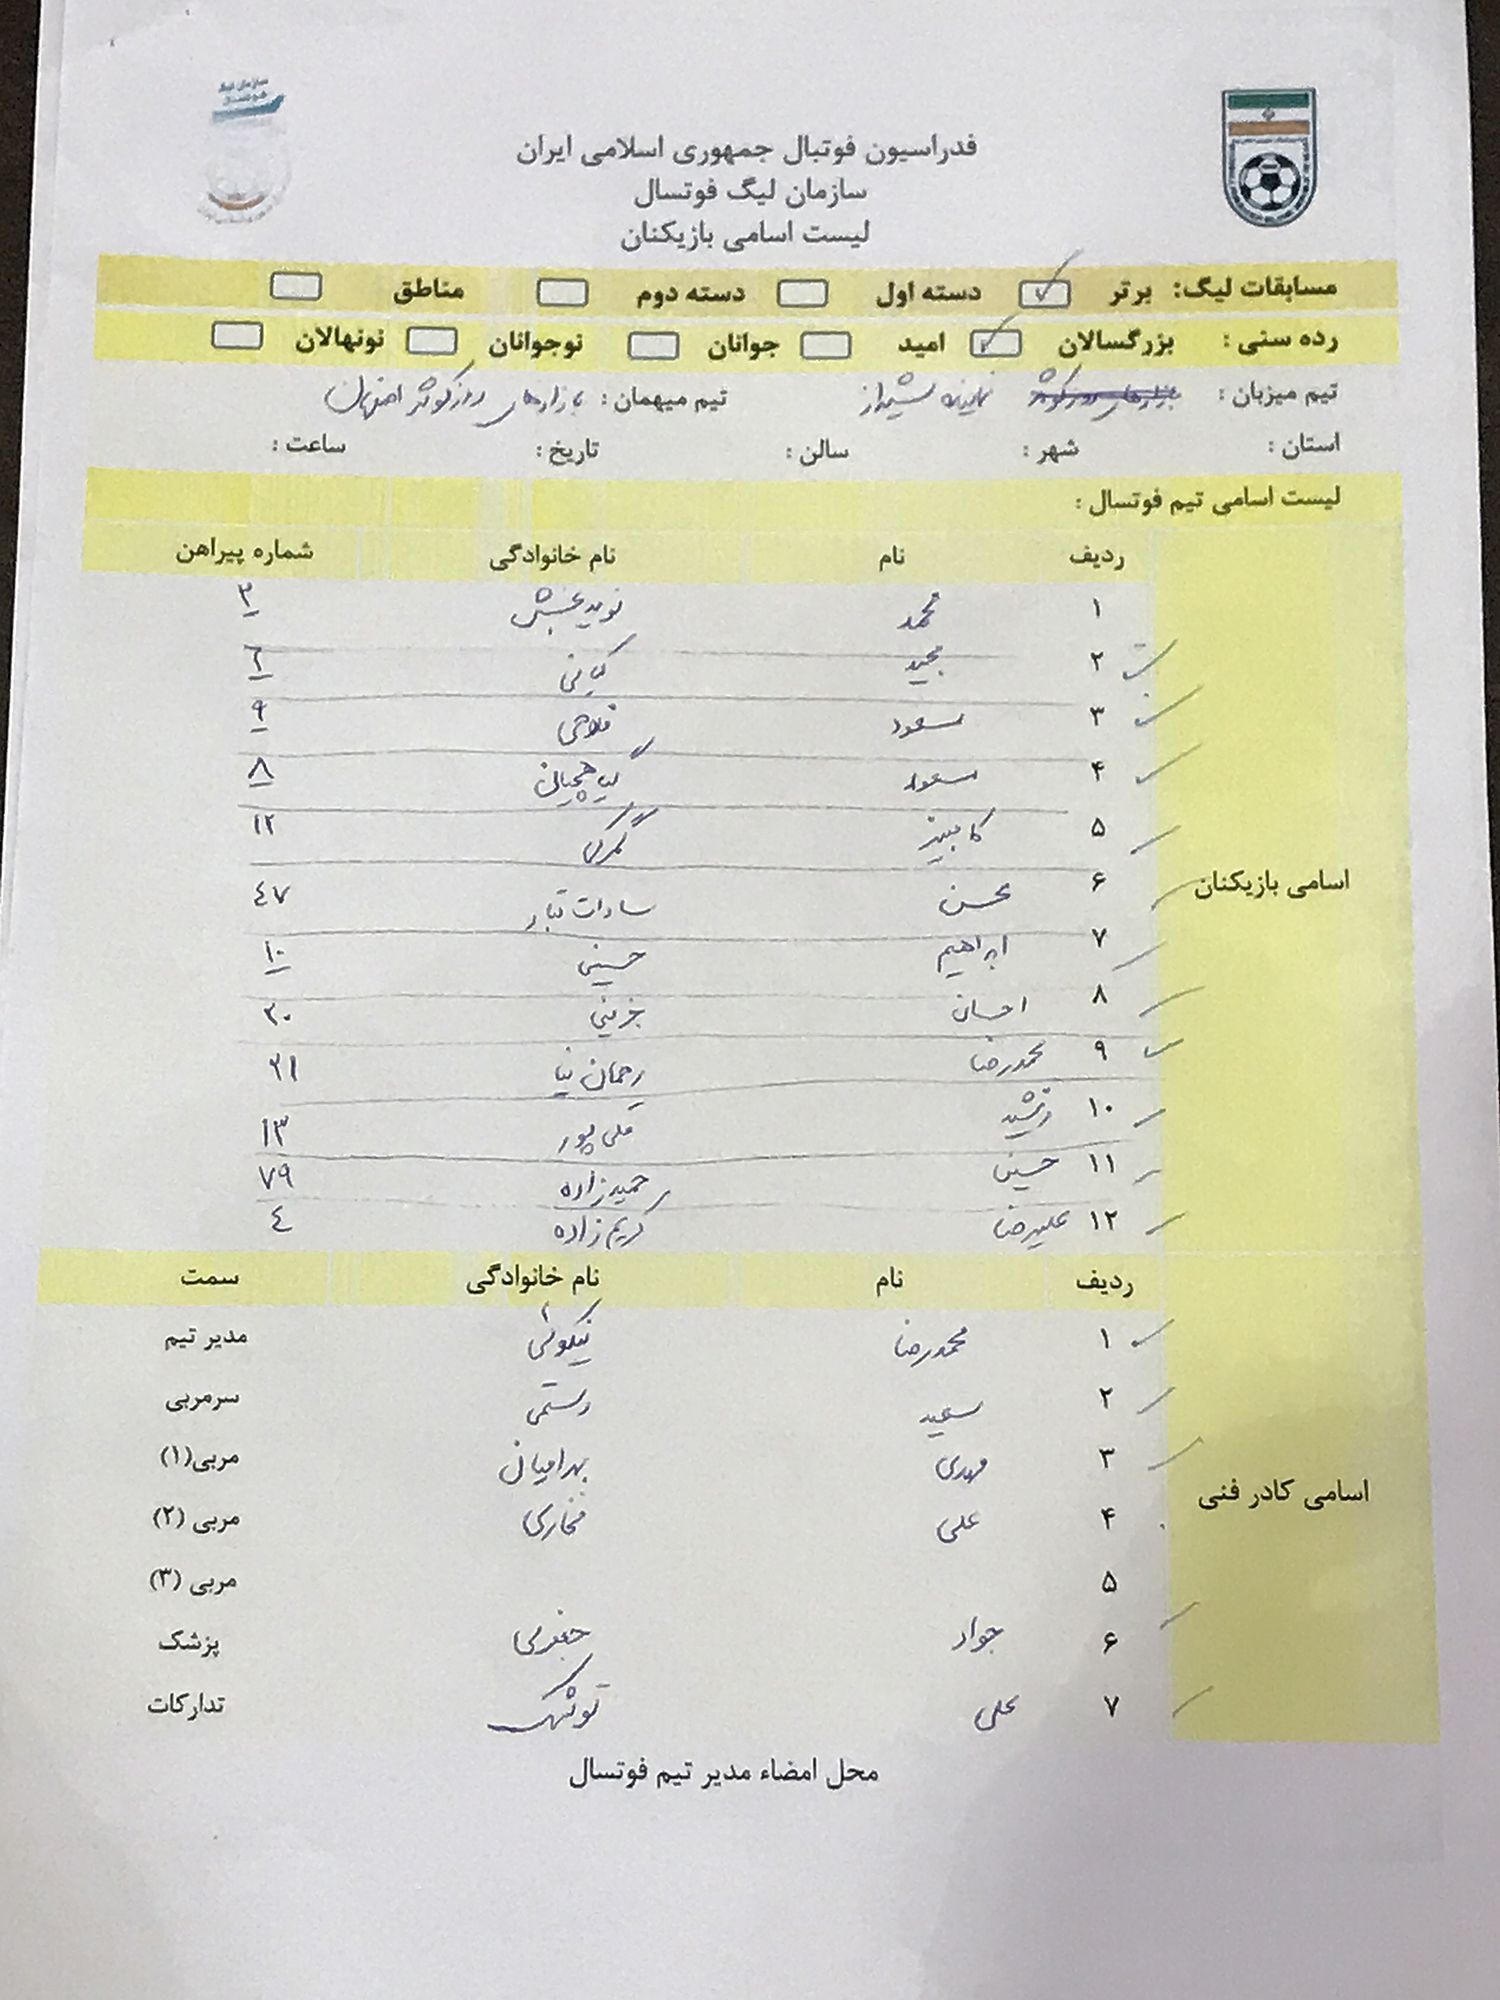 سازمان لیگ فوتسال
فدراسیون فوتبال جمهوری اسلامی ایران
سازمان لیگ فوتسال
لیست اسامی بازیکنان
مسابقات لیگ: برتر دسته اول دسته دوم مناطق
رده سنی : بزرگسالان امید جوانان نوجوانان نونهالان
تیم میزبان : نماینده شیراز تیم میهمان : بازارهای روز کوثر اصفهان
استان : شهر : سالن : تاریخ : ساعت :
لیست اسامی تیم فوتسال :
ردیف نام نام خانوادگی شماره پیراهن
اسامی بازیکنان
۱ محمد نویدبخش ۳
۲ مجید کیانی ۲
۳ مسعود فلاحی ۹
۴ مسعود ۸
۵ ۱۲
۶ محسن سادات تبار ٤۷
۷ ابراهیم حسینی ۱۰
۸ احسان ۲۰
۹ محمدرضا رحمان نیا ۳۱
۱۰ فرشید قلی پور ۱۳
۱۱ حسین حمیدزاده ۷۹
۱۲ علیرضا کریم زاده ٤
ردیف نام نام خانوادگی سمت
اسامی کادر فنی
۱ محمدرضا نیکوئی مدیر تیم
۲ سعید رستمی سرمربی
۳ مهدی بهرامیان مربی(۱)
۴ علی مربی (۲)
۵ مربی (۳)
۶ جواد جعفری پزشک
۷ علی تدارکات
محل امضاء مدیر تیم فوتسال